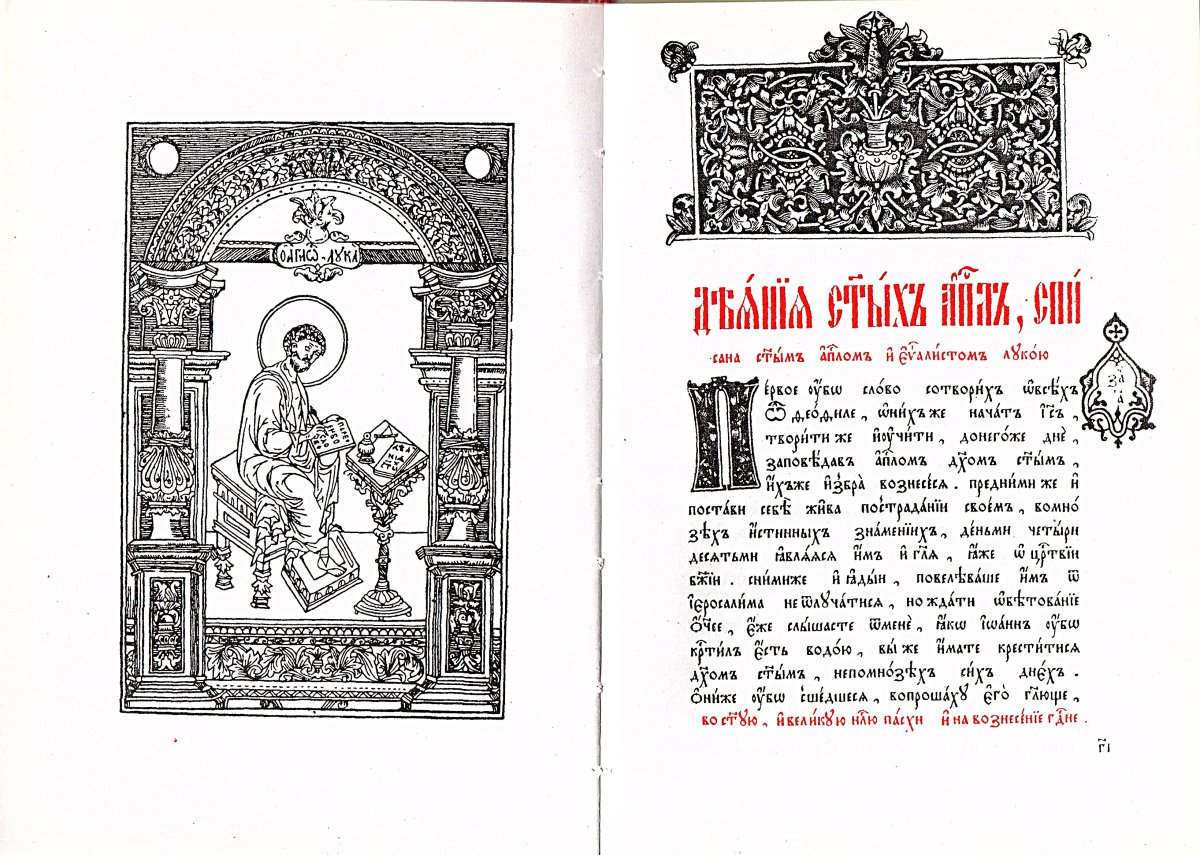 ОАГИСѠ ЛУКА
ДѢѦ́НЇѦ СТ҃ЫХЪ АП҃ЛЪ, СПИ́
сана ст҃ымъ ап҃ломъ и҆ єѵ҃али́стомъ луко́ю
за а҃
Пе́рвое ᲂу҆́бѡ сло́во сотвори́хъ ѡ҆всѣ́хъ
ѽ ѳео́ѳиле, ѡ҆ни́хъ же нача́тъ і҆с҃ъ,
твори́ти же и҆ᲂу҆чи́ти, донего́же днѐ,
заповѣ́давъ а҆п҃ломъ дх҃омъ ст҃ымъ,
и҆́хъже и҆збра̀ вознесе́сѧ. предни́ми же и҆
поста́ви себѐ жи́ва постра́данїи свое́мъ, вомно́
зѣхъ и҆́стинныхъ зна́менїихъ, де́ньми четы́ри
десѧтьми ꙗ҆влѧ́ѧсѧ и҆̀мъ и҆ гл҃ѧ, ꙗ҆́же ѡ҆ црⷭ҇твїи
бж҃їи. сни́миже и҆ ꙗ҆ды́и, повелѣ́ваше и҆̀мъ ѿ
і҆єросали́ма не ѿлуча́тисѧ, но жда́ти ѡ҆бѣтова́нїе
ѻ҆́ч҃ее, є҆́же слы́шасте ѿменѐ, ꙗ҆́кѡ і҆ѡа́ннъ ᲂу҆́бѡ
крⷭ҇ти́лъ є҆́сть водо́ю, вы́ же и҆́мате крести́тисѧ
дх҃омъ ст҃ымъ, непомно́зѣхъ си́хъ дне́хъ.
Ѻ҆ни́же ᲂу҆́бѡ сше́дшесѧ, вопроша́ху є҆го̀ гл҃юще,
во ст҃ую, и҆ вели́кую нлⷣю па́схи и҆ на вознесе́нїе гдⷭ҇не.
г҃і